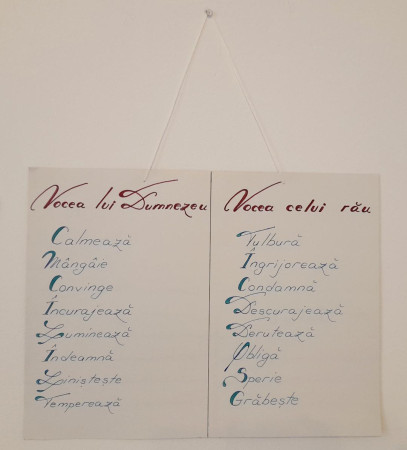 Vocea lui Dumnezeu
Calmează
Mângâie
Convinge
Încurajează
Luminează
Îndeamnă
Liniștește
Temperează
Vocea celui rău
Tulbură
Îngrijorează
Condamnă
Descurajează
Derutează
Obligă
Sperie
Grăbește